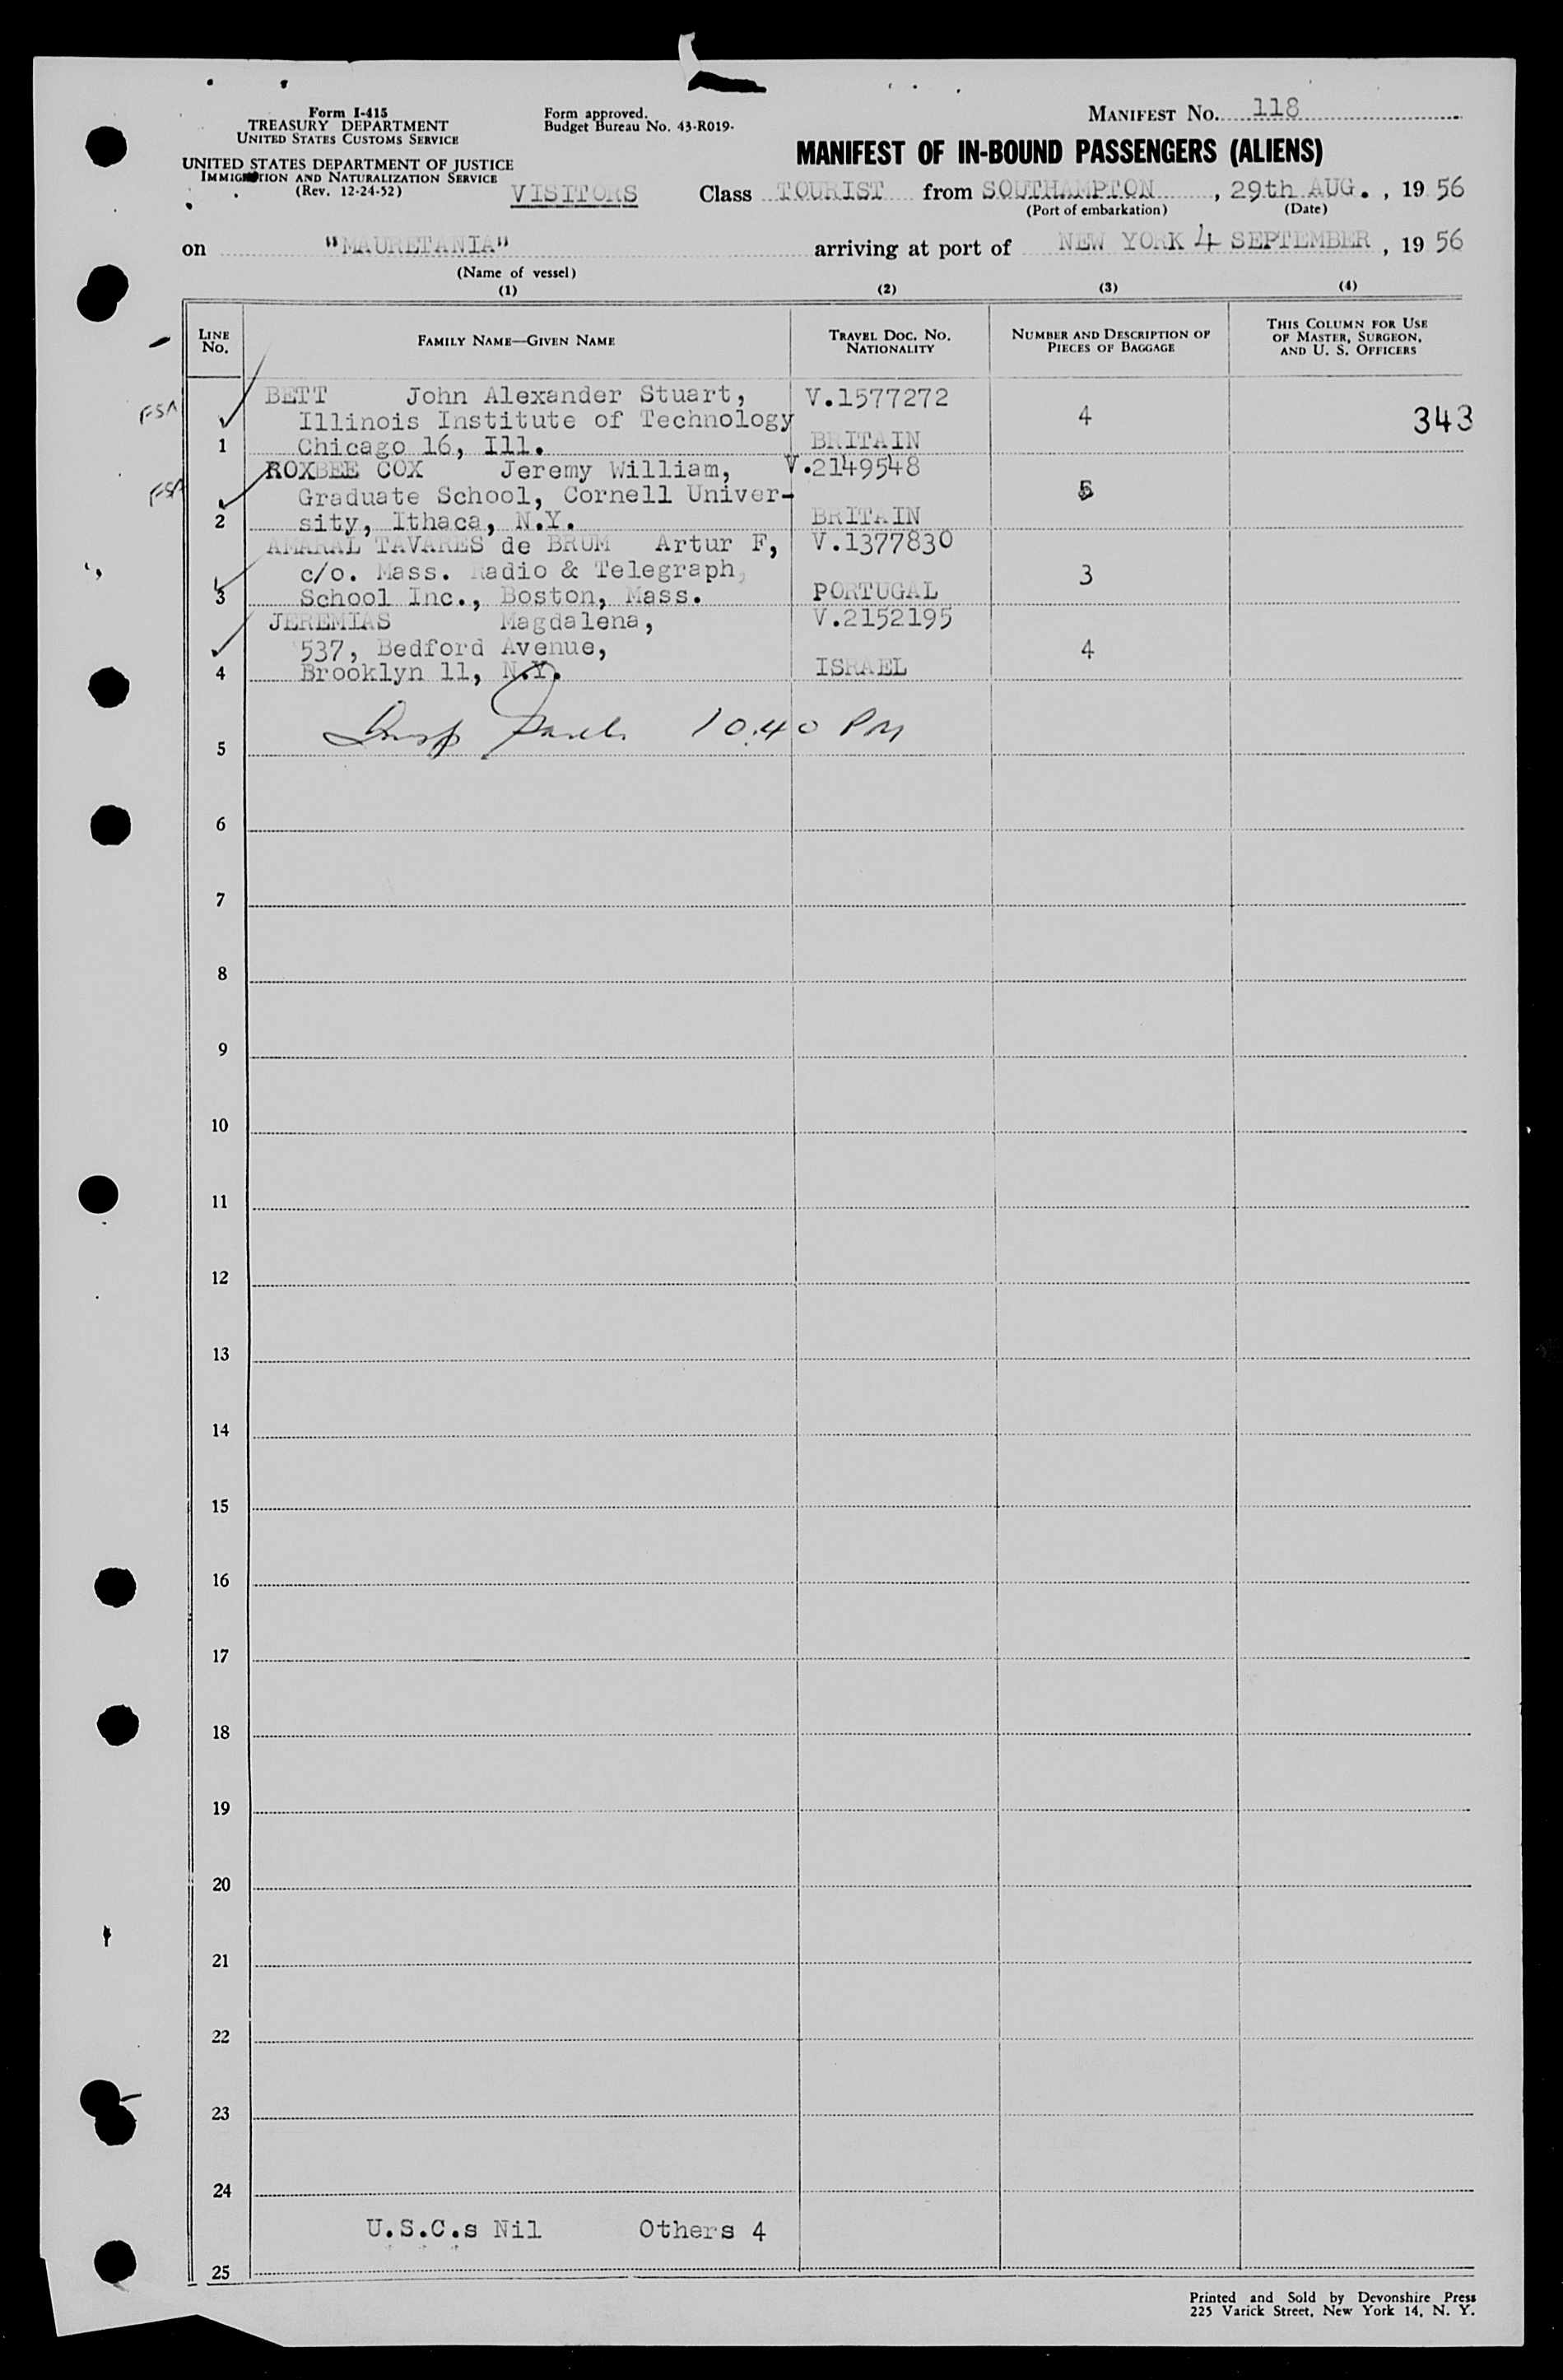 Form I-415
TREASURY DEPARTMENT
UNITED STATES CUSTOMS SERVICE
UNITED STATES DEPARTMENT OF JUSTICE
IMMIGRATION AND NATURALIZATION SERVICE
(Rev. 12-24-52)
Form approved.
Budget Bureau No. 43-R019-
MANIFEST No. 118
MANIFEST OF IN-BOUND PASSENGERS (ALIENS)
VISITORS Class TOURIST from SOUTHAMPTON, 29th AUG., 19 56
(Port of embarkation) (Date)
on "MAURETANIA" arriving at port of NEW YORK 4 SEPTEMBER, 19 56
(Name of vessel)
(1) (2) (3) (4)
LINE No. FAMILY NAME—GIVEN NAME TRAVEL DOC. No. NATIONALITY NUMBER AND DESCRIPTION OF PIECES OF BAGGAGE THIS COLUMN FOR USE OF MASTER, SURGEON, AND U. S. OFFICERS
BETT John Alexander Stuart, V.1577272
FSA Illinois Institute of Technology 4 343
1 Chicago 16, Ill. BRITAIN
ROXBEE COX Jeremy William, V.2149548
FSA Graduate School, Cornell Univer- 5
2 sity, Ithaca, N.Y. BRITAIN
AMARAL TAVARES de BRUM Artur F, V.1377830
c/o. Mass. Radio & Telegraph, 3
3 School Inc., Boston, Mass. PORTUGAL
JEREMIAS Magdalena, V.2152195
537, Bedford Avenue, 4
4 Brooklyn 11, N.Y. ISRAEL
Insp 10.40 PM
5
6
7
8
9
10
11
12
13
14
15
16
17
18
19
20
21
22
23
24
U.S.C.s Nil Others 4
25
Printed and Sold by Devonshire Press
225 Varick Street, New York 14, N. Y.